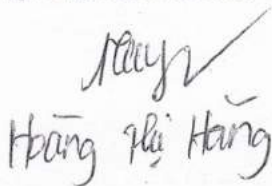 Hoàng Thị Hằng